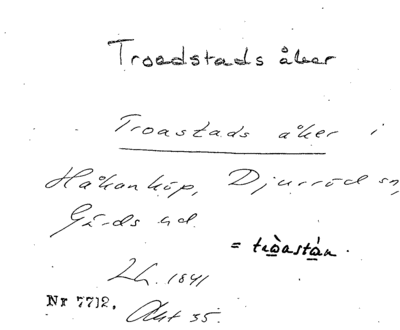 Troedstads åker
Troastads åker i
Håkanköp, Djurröd sn,
Gärds hd.
= tròastán.
Lh. 1841
Nr 7712. Akt 35.